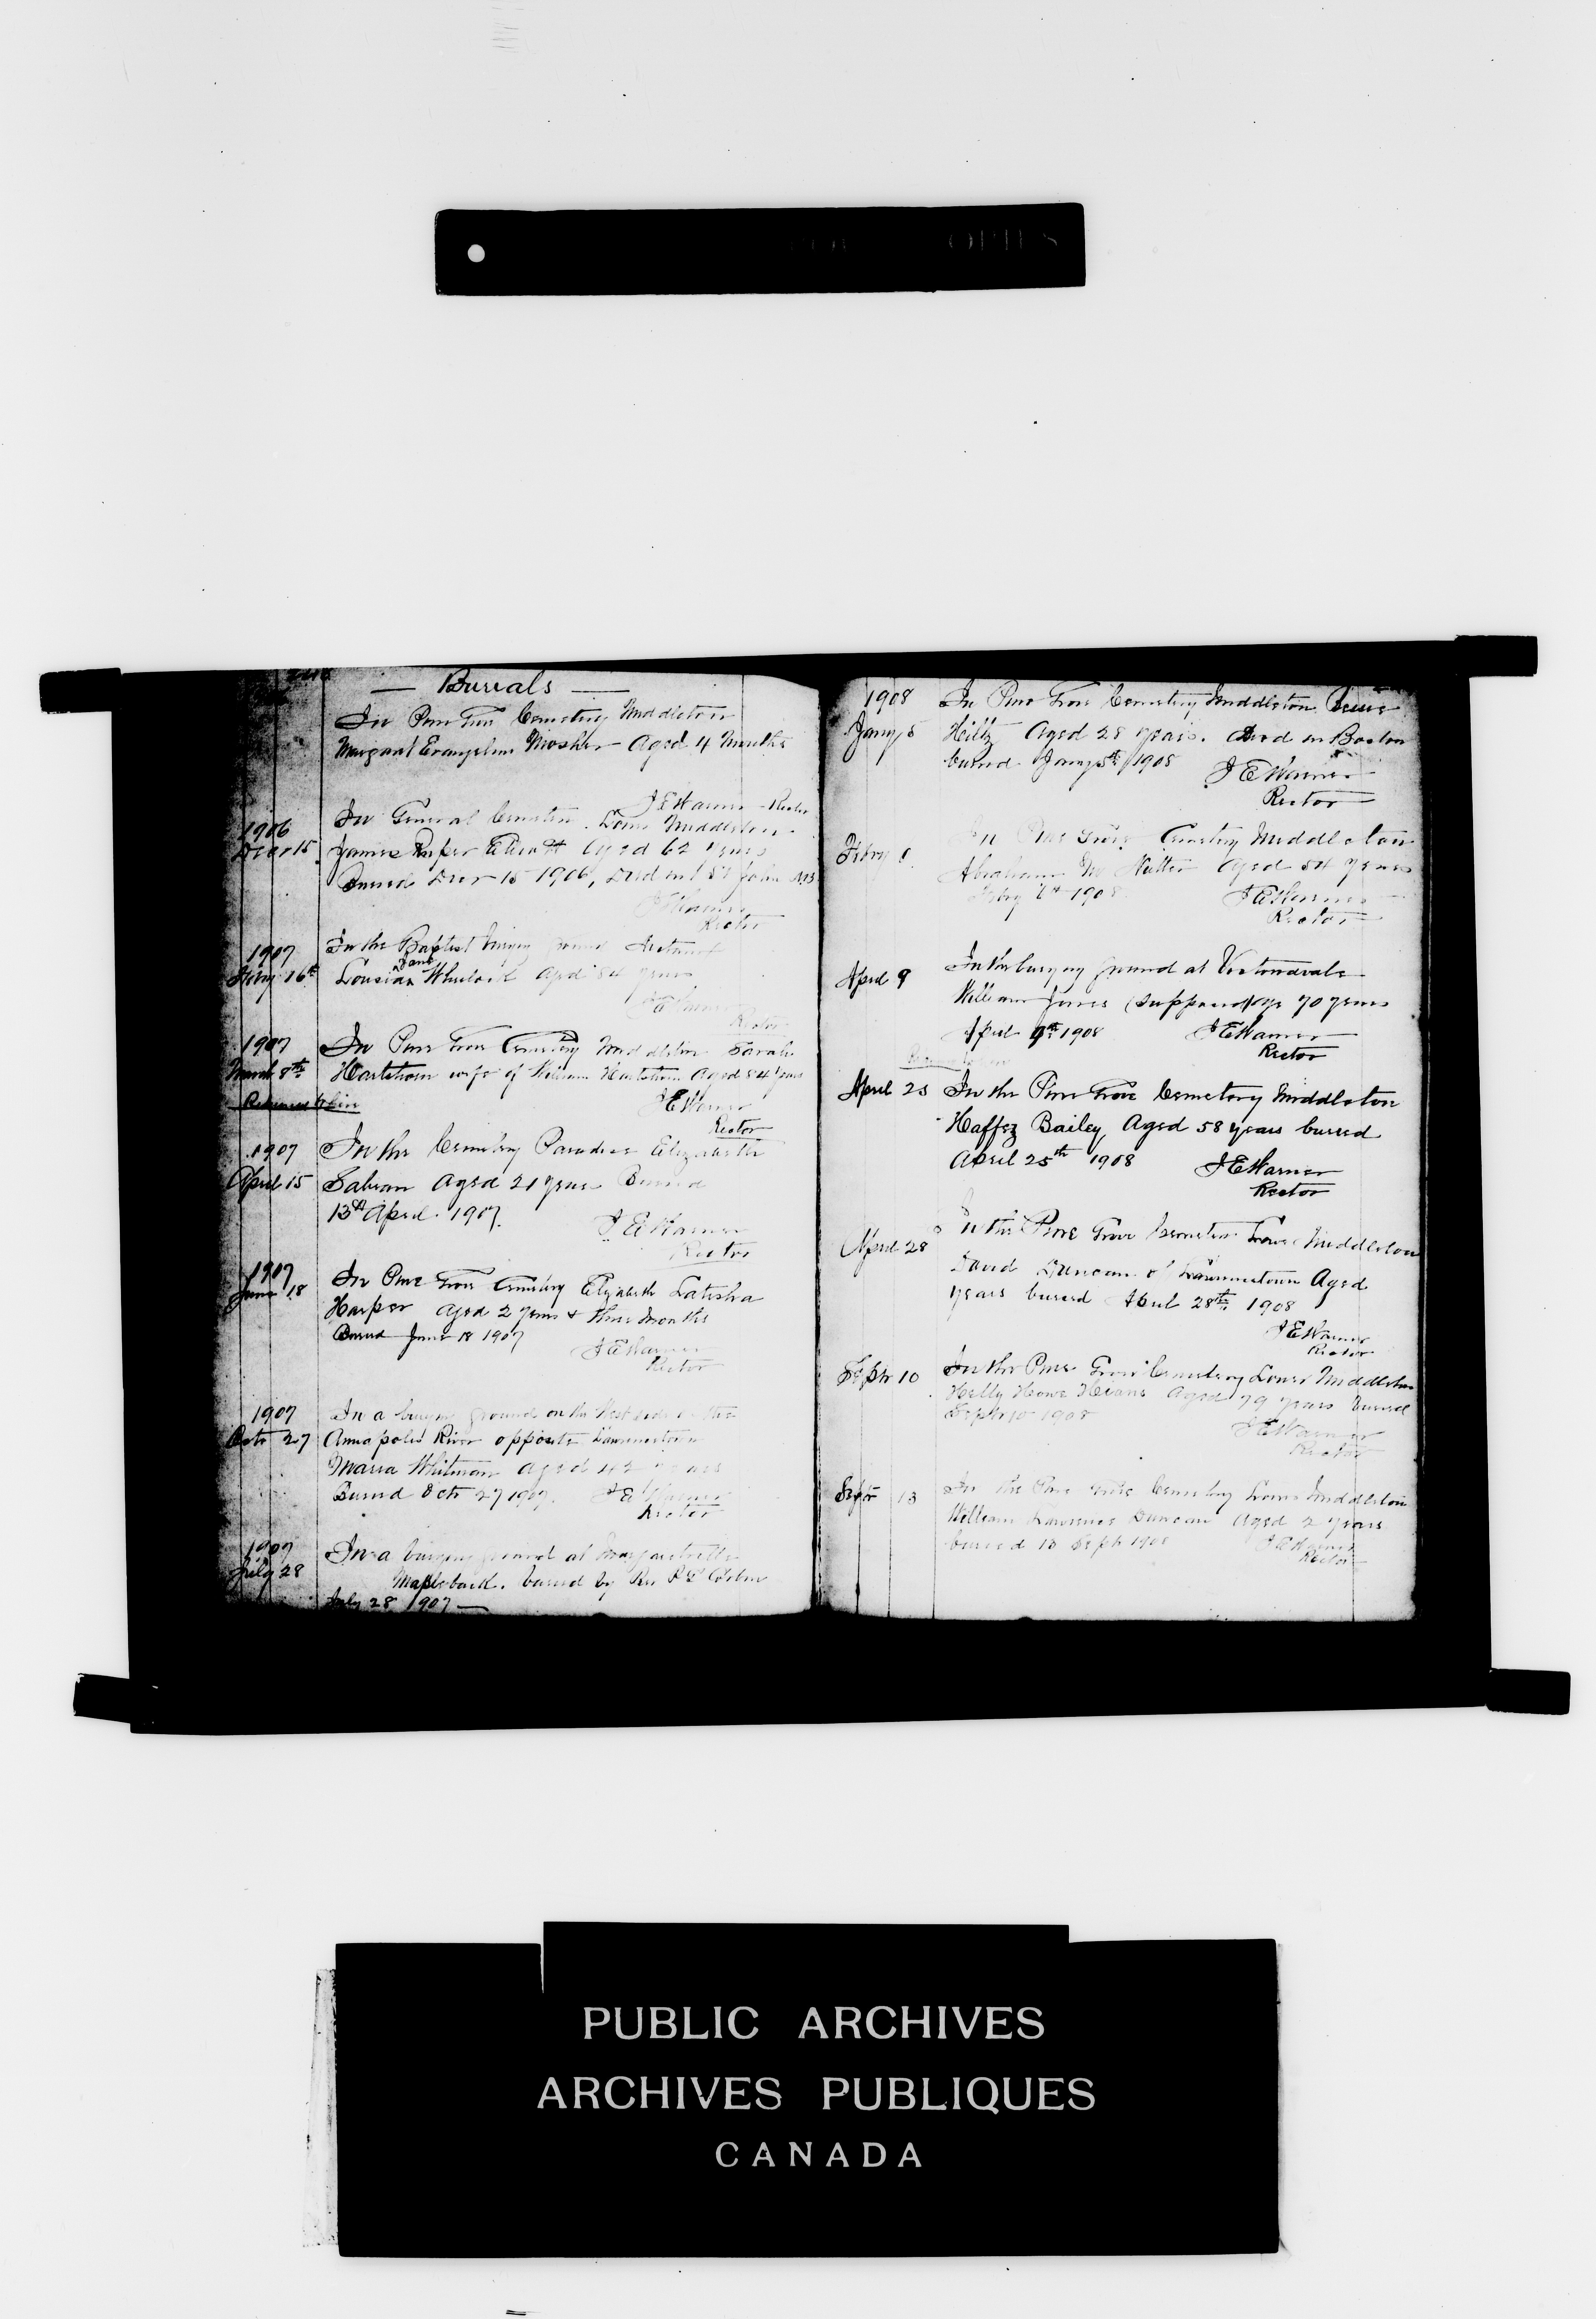 — Burials —
In Pine Grove Cemetery Middleton
Margaret Evangeline Mosher Aged 4 Months
J E Warner Rector
1906 In General Cemetery Lower Middleton
Decr 15 James Elliott Aged 62 years
Buried Decr 15 1906, Died in St John NB
J E Warner
Rector
1907 In the Baptist burying ground
Feby 16th Jane Wheelock Aged 84 years
Rector
1907 In Pine Grove Cemetery Middleton Sarah
March 8th Hartshorn wife of William Hartshorn Aged 84 years
J E Warner
Rector
1907 In the Cemetery Paradise Elizabeth
April 15 Aged 21 years Buried
13th April 1907.
J E Warner
Rector
1907 In Pine Grove Cemetery Elizabeth Latisha
June 18 Harper Aged 2 years & three months
Buried June 18 1907
J E Warner
Rector
1907 In a burying ground on the West side of the
Octr 27 Annapolis River opposite Lawrencetown
Maria Whitman aged 42 years
Buried Octr 27 1907. J E Warner
Rector
1907 In a burying ground at Margaretville
July 28 buried by Rev
July 28 1907 —
1908 In Pine Grove Cemetery Middleton
Jany 5 Hiltz Aged 28 years. Died in Boston
buried Jany 5th 1908 J E Warner
Rector
Feby In Pine Grove Cemetery Middleton
Abraham Aged 54 years
Feby 6th 1908 J E Warner
Rector
April 9 In the burying ground at Victoriavale
William Jones (supposed) age 70 years
April 9th 1908 J E Warner
Rector
April 25 In the Pine Grove Cemetery Middleton
Haffez Bailey, Aged 58 years buried
April 25th 1908 J E Warner
Rector
April 28 In the Pine Grove Cemetery Lower Middleton
David Duncan of Lawrencetown Aged
years buried April 28th 1908
J E Warner
Rector
Septr 10 In the Pine Grove Cemetery Lower Middleton
Howe Aged 79 years buried
Septr 10 1908
J E Warner
Rector
Septr 13 In the Pine Grove Cemetery Lower Middleton
William Lawrence Duncan Aged 2 years
buried 13 Septr 1908 J E Warner
Rector
PUBLIC ARCHIVES
ARCHIVES PUBLIQUES
CANADA